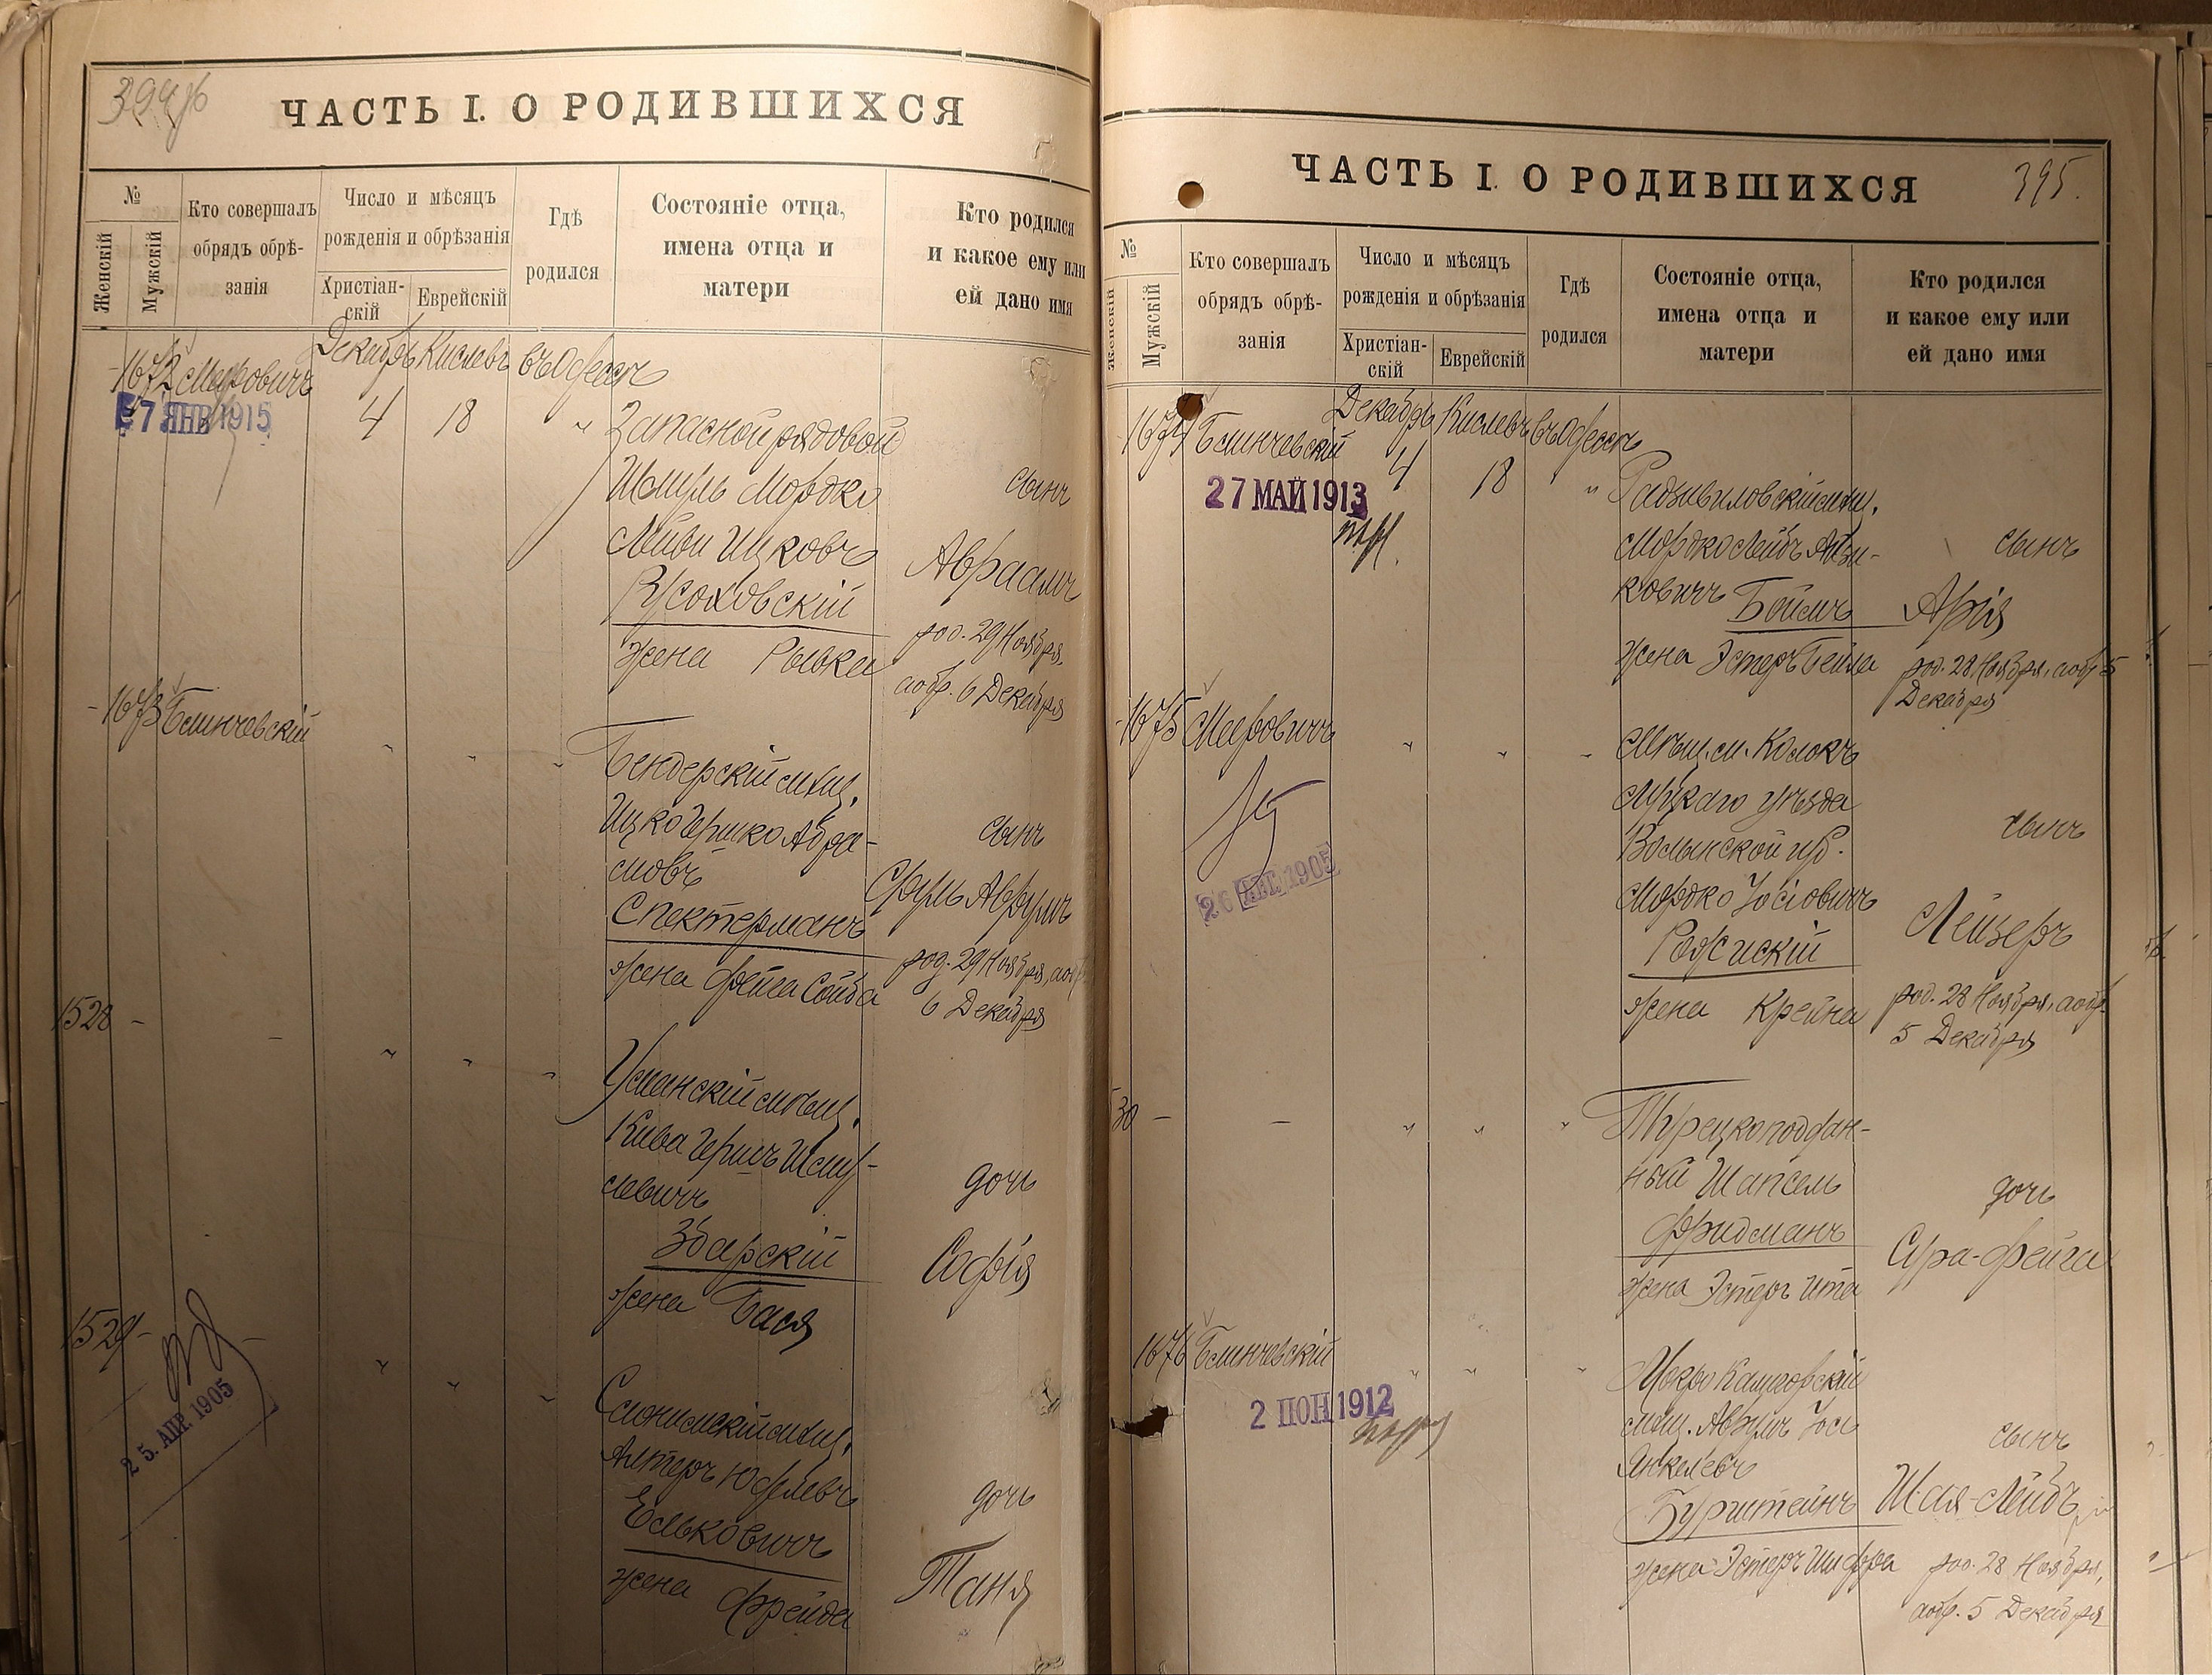 394об
ЧАСТЬ I. О РОДИВШИХСЯ
№
Женскій
Мужскій
Кто совершалъ
обрядъ обрѣ-
занія
Число и мѣсяцъ
рожденія и обрѣзанія
Христіан-
скій
Еврейскій
Гдѣ
родился
Состояніе отца,
имена отца и
матери
Кто родился
и какое ему или
ей дано имя
Декабрь Кислевъ въ Одессѣ
1672 Меѣровичъ
7 ЯНВ 1915
4 18 " Запасной рядовой
Шмуль Мордко
Лейви Ицковъ
Русоховскій
жена Рывка
сынъ
Авраамъ
род. 29 Ноября,
а обр. 6 Декабря
1673 Блинчевскій " " "
Бендерскій мѣщ.
Ицко Гершко Абра-
мовъ
Спектерманъ
жена Фейга Сойба
сынъ
Сруль Аврумъ
род. 29 Ноября, а обр.
6 Декабря
1528 - - " " "
Уманскій мѣщ.
Кива Гершъ Шму-
левичъ
Збарскій
жена Бася
дочь
Софія
1529 - " " "
25. АПР. 1905
Слонимскій мѣщ.
Алтеръ Юделевъ
Ельковичъ
жена Фрейда
дочь
Таня
ЧАСТЬ I. О РОДИВШИХСЯ
395.
№
Женскій
Мужскій
Кто совершалъ
обрядъ обрѣ-
занія
Число и мѣсяцъ
рожденія и обрѣзанія
Христіан-
скій
Еврейскій
Гдѣ
родился
Состояніе отца,
имена отца и
матери
Кто родился
и какое ему или
ей дано имя
Декабрь Кислевъ въ Одессѣ
1674 Блинчевскій 4 18 "
27 МАЙ 1913
Радзивиловскій мѣщ.
Мордко Лейбъ Айзи-
ковичъ Боймъ
жена Эстеръ Бейла
сынъ
Арія
род. 28 Ноября, а обр. 5
Декабря
1675 Меѣровичъ " " "
26 АВГ. 1905
Мѣщ. м. Колокъ
Луцкаго уѣзда
Волынской губ.
Мордко Іосіовичъ
Рожискій
жена Крейна
сынъ
Лейзеръ
род. 28 Ноября, а обр.
5 Декабря
30 - - " " "
Турецкоподдан-
ный Шапсель
Фридманъ
жена Эстеръ Ита
дочь
Сура-Фейга
1676 Блинчевскій " " "
2 ІЮН 1912
мѣщ. Аврумъ Іось
Янкелевъ
Бурштейнъ
жена Эстеръ Шифра
сынъ
Шая-Лейбъ
род. 28 Ноября,
а обр. 5 Декабря